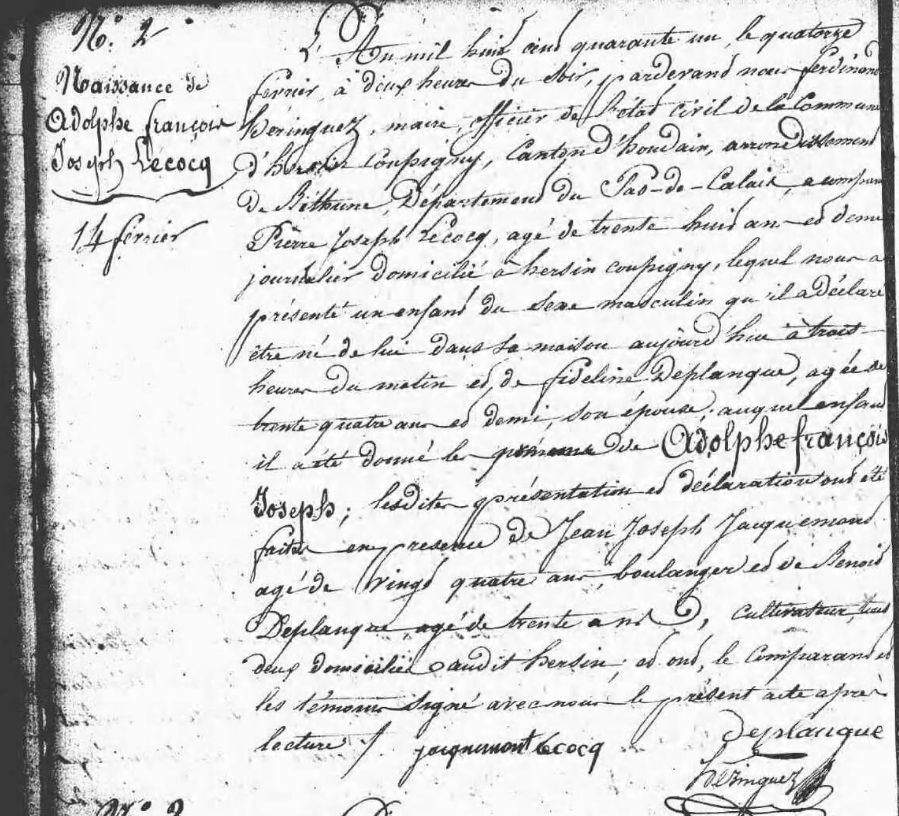 N.o 2
Naissance de
Adolphe françois
Joseph Lecocq
14 février
L'An mil huit cent quarante un, le quatorze
février, à deux heures du soir, pardevant nous ferdinand
héringuez, maire, officier de l'état civil de la Commune
d'hersin Coupigny, Canton d'houdain, arrondissement
de Béthune, Département du Pas-de-Calais, a comparu
Pierre Joseph Lecocq, agé de trente huit ans et demi
journalier domicilié à hersin coupigny, lequel nous a
présenté un enfant du sexe masculin qu'il a déclaré
être né de lui dans sa maison aujourd'hui à trois
heures du matin et de fideline Deplanque, agée de
trente quatre ans et demi, son épouse, auquel enfant
il a été donné les prénoms de Adolphe françois
Joseph; lesdites présentation et déclaration ont été
faites en presence de Jean Joseph Jacquemont
agé de vingt quatre ans boulanger et de Benoit
Deplanque, agé de trente ans, cultivateur, tous
deux domiciliés audit hersin; et ont, le Comparant et
les témoins signé avec nous le présent acte après
lecture /. jacquemont lecocq
Deplanque
hézinguez
N.o 3